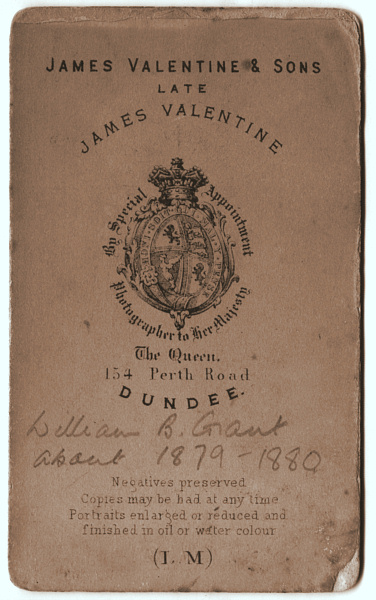 JAMES VALENTINE & SONS
LATE
JAMES VALENTINE
By Special Appointment
Photographer to Her Majesty
The Queen.
154 Perth Road
DUNDEE.
William B. Grant
about 1879-1880
Negatives preserved
Copies may be had at any time
Portraits enlarged or reduced and
finished in oil or water colour
(I. M)